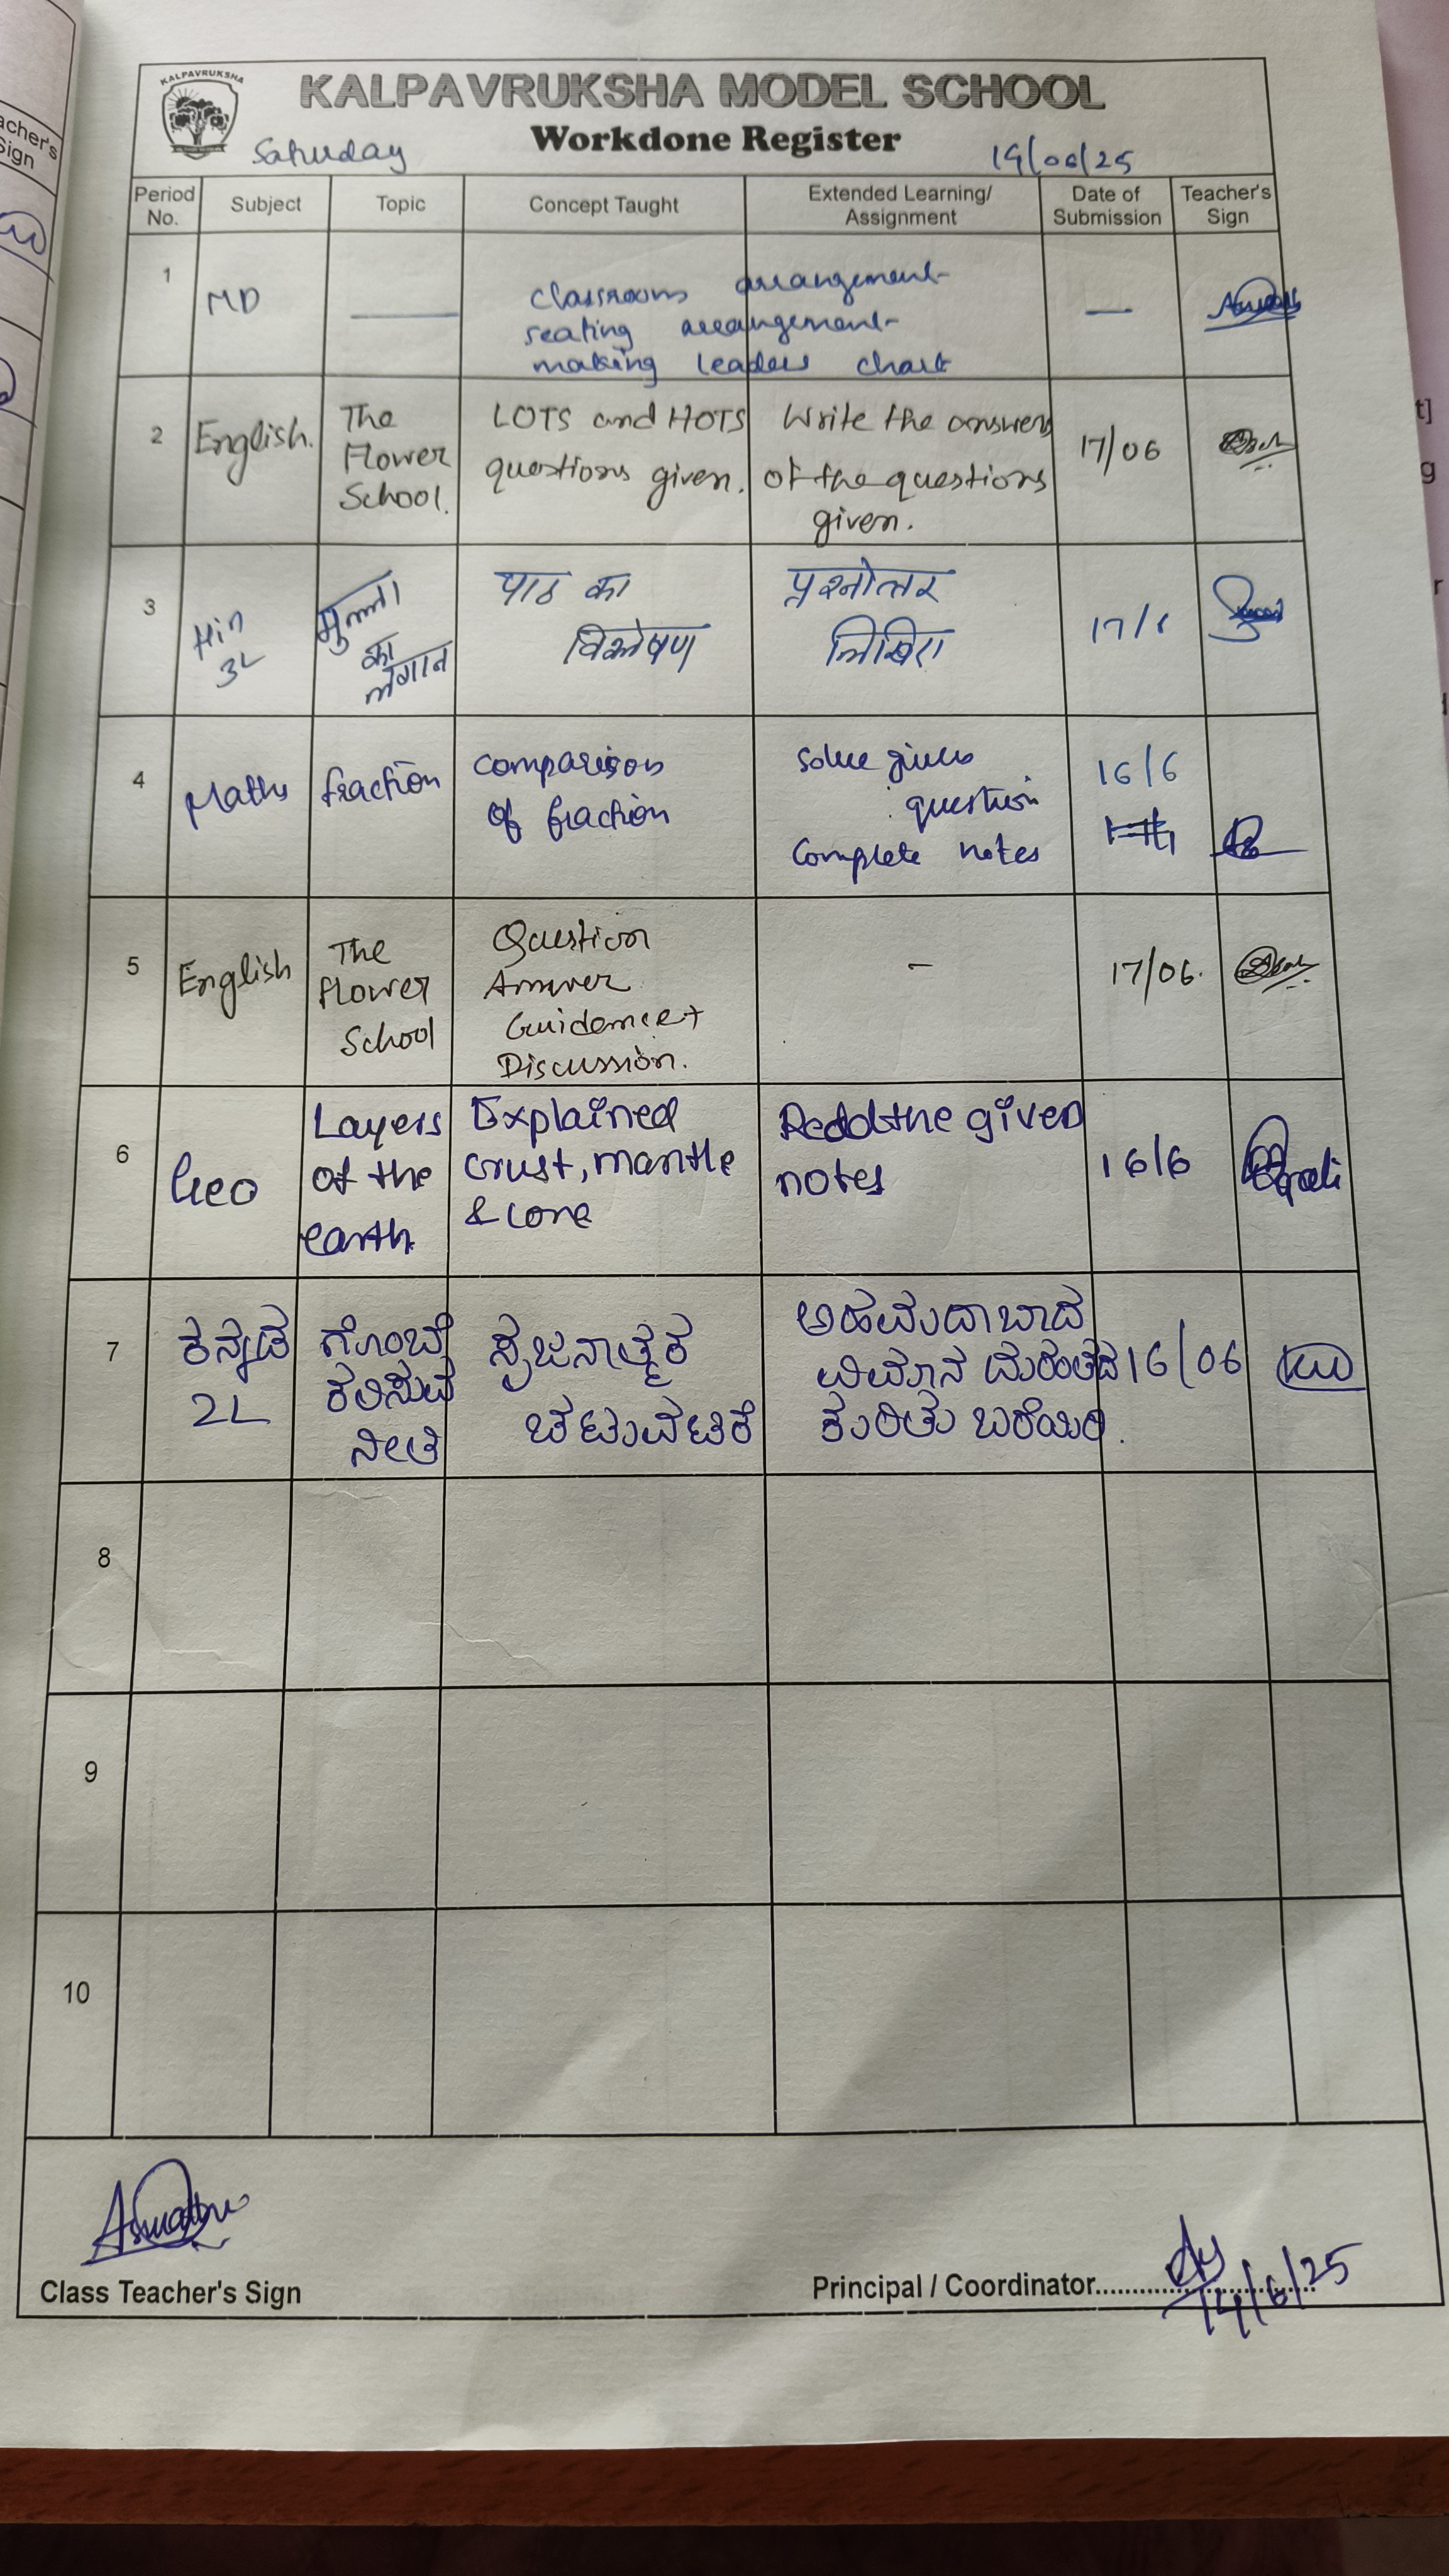 KALPAVRUKSHA
KALPAVRUKSHA MODEL SCHOOL
Workdone Register
Saturday
14/06/25
Period No.
Subject
Topic
Concept Taught
Extended Learning/ Assignment
Date of Submission
Teacher's Sign
1
MD
classroom arrangement
seating arrangement
making leaders chart
—
2
English.
The
Flower
School.
LOTS and HOTS
questions given.
Write the answers
of the questions
given.
17/06
3
Hin
3L
का
लगान
पाठ का
विश्लेषण
प्रश्नोत्तर
लिखिए
17/6
4
Maths
fraction
comparison
of fraction
solve given
question
Complete notes
16/6
5
English
The
Flower
School
Question
Answer
Guidance +
Discussion.
-
17/06.
6
Geo
Layers
of the
earth.
Explained
crust, mantle
& core
Read the given
notes
16/6
7
ಕನ್ನಡ
2L
ಗೊಂಬೆ
ಕಲಿಸುವ
ನೀತಿ
ಸೃಜನಾತ್ಮಕ
ಚಟುವಟಿಕೆ
ಅಹಮದಾಬಾದ
ವಿಮಾನ ದುರಂತದ
ಕುರಿತು ಬರೆಯಿರಿ.
16/06
8
9
10
Class Teacher's Sign
Principal / Coordinator
14/6/25